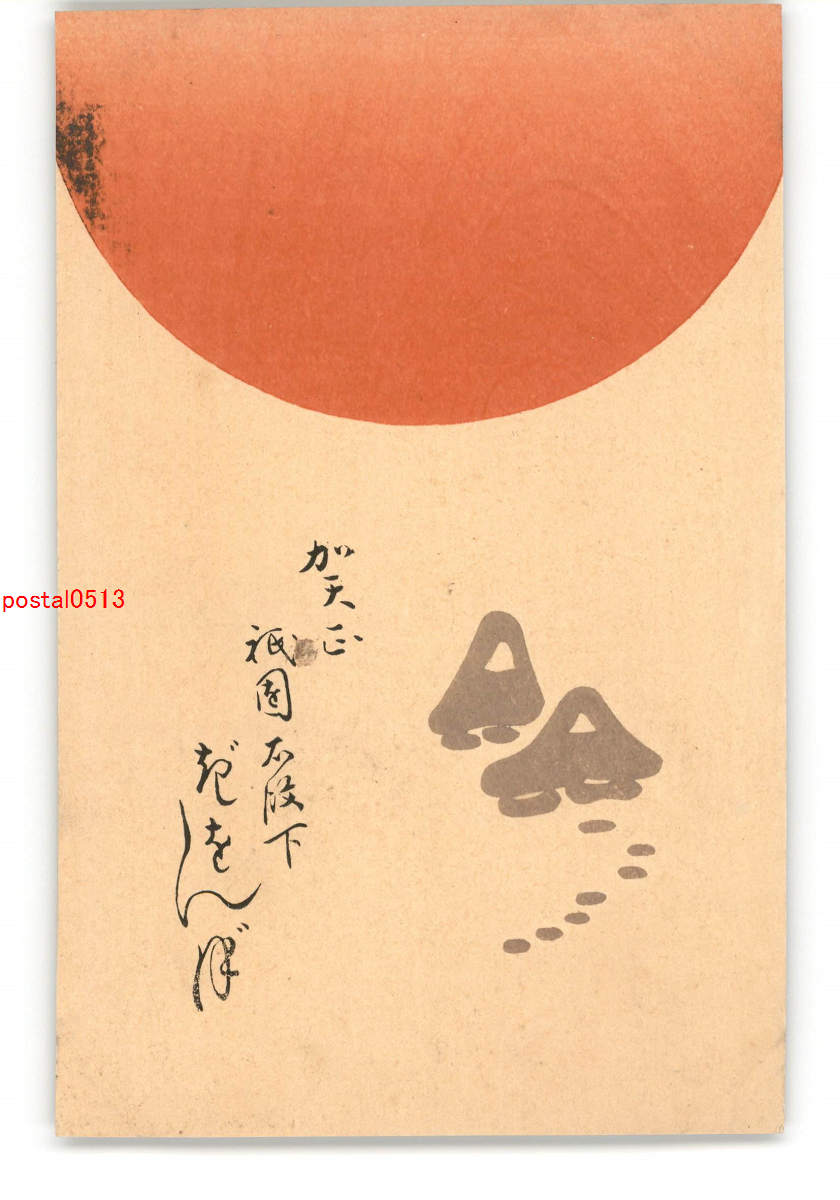 賀正
祇園石段下
ぎをんぼ
postal0513